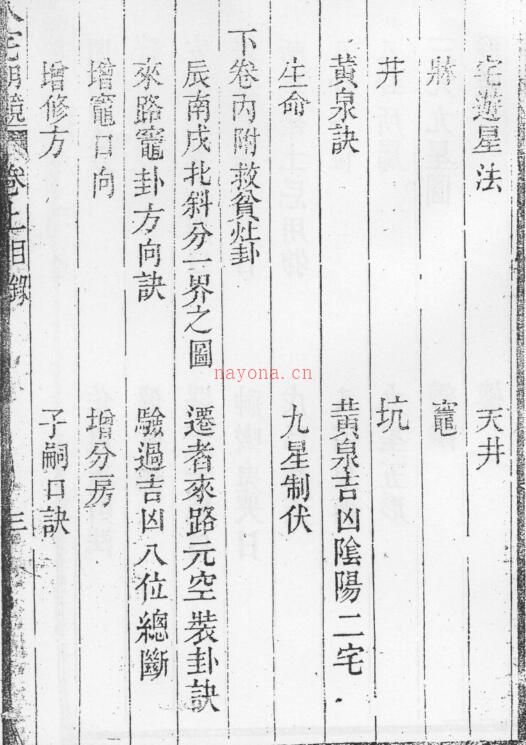 宅遊星法　天井
牀　竈
井　坑
黃泉訣　黃泉吉凶陰陽二宅
生命　九星制伏
下卷內附救貧灶卦
辰南戌北斜分一界之圖　遷者來路元空裝卦訣
來路竈卦方向訣　驗過吉凶八位總斷
增竈口向　增分房
增修方　子嗣口訣
宅明鏡　卷上目錄　三
nayona.cn